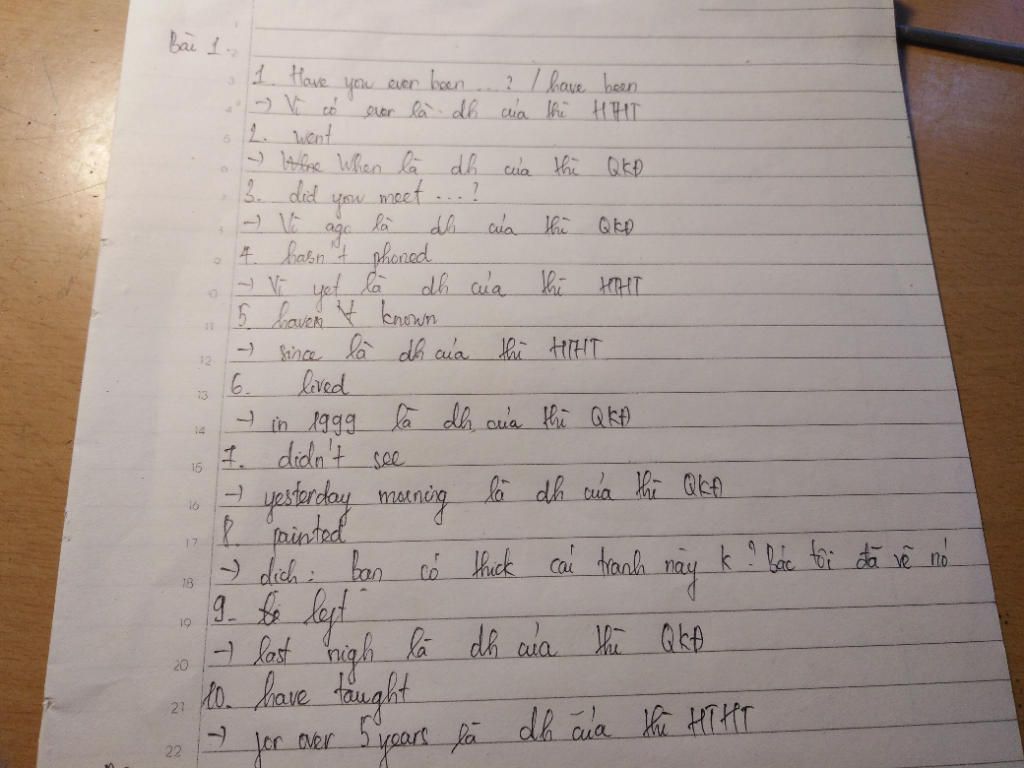 Bài 1.
1. Have you ever been ...? / have been
→ Vì có ever là dh của thì HTHT
2. went
→ When là dh của thì QKĐ
3. did you meet ...?
→ Vì ago là dh của thì QKĐ
4. hasn't phoned
→ Vì yet là dh của thì HTHT
5. haven't known
→ since là dh của thì HTHT
6. lived
→ in 1999 là dh của thì QKĐ
7. didn't see
→ yesterday morning là dh của thì QKĐ
8. painted
→ dịch: bạn có thick cái tranh này k? Bác tôi đã vẽ nó
9. left
→ last nigh là dh của thì QKĐ
10. have taught
→ for over 5 years là dh của thì HTHT